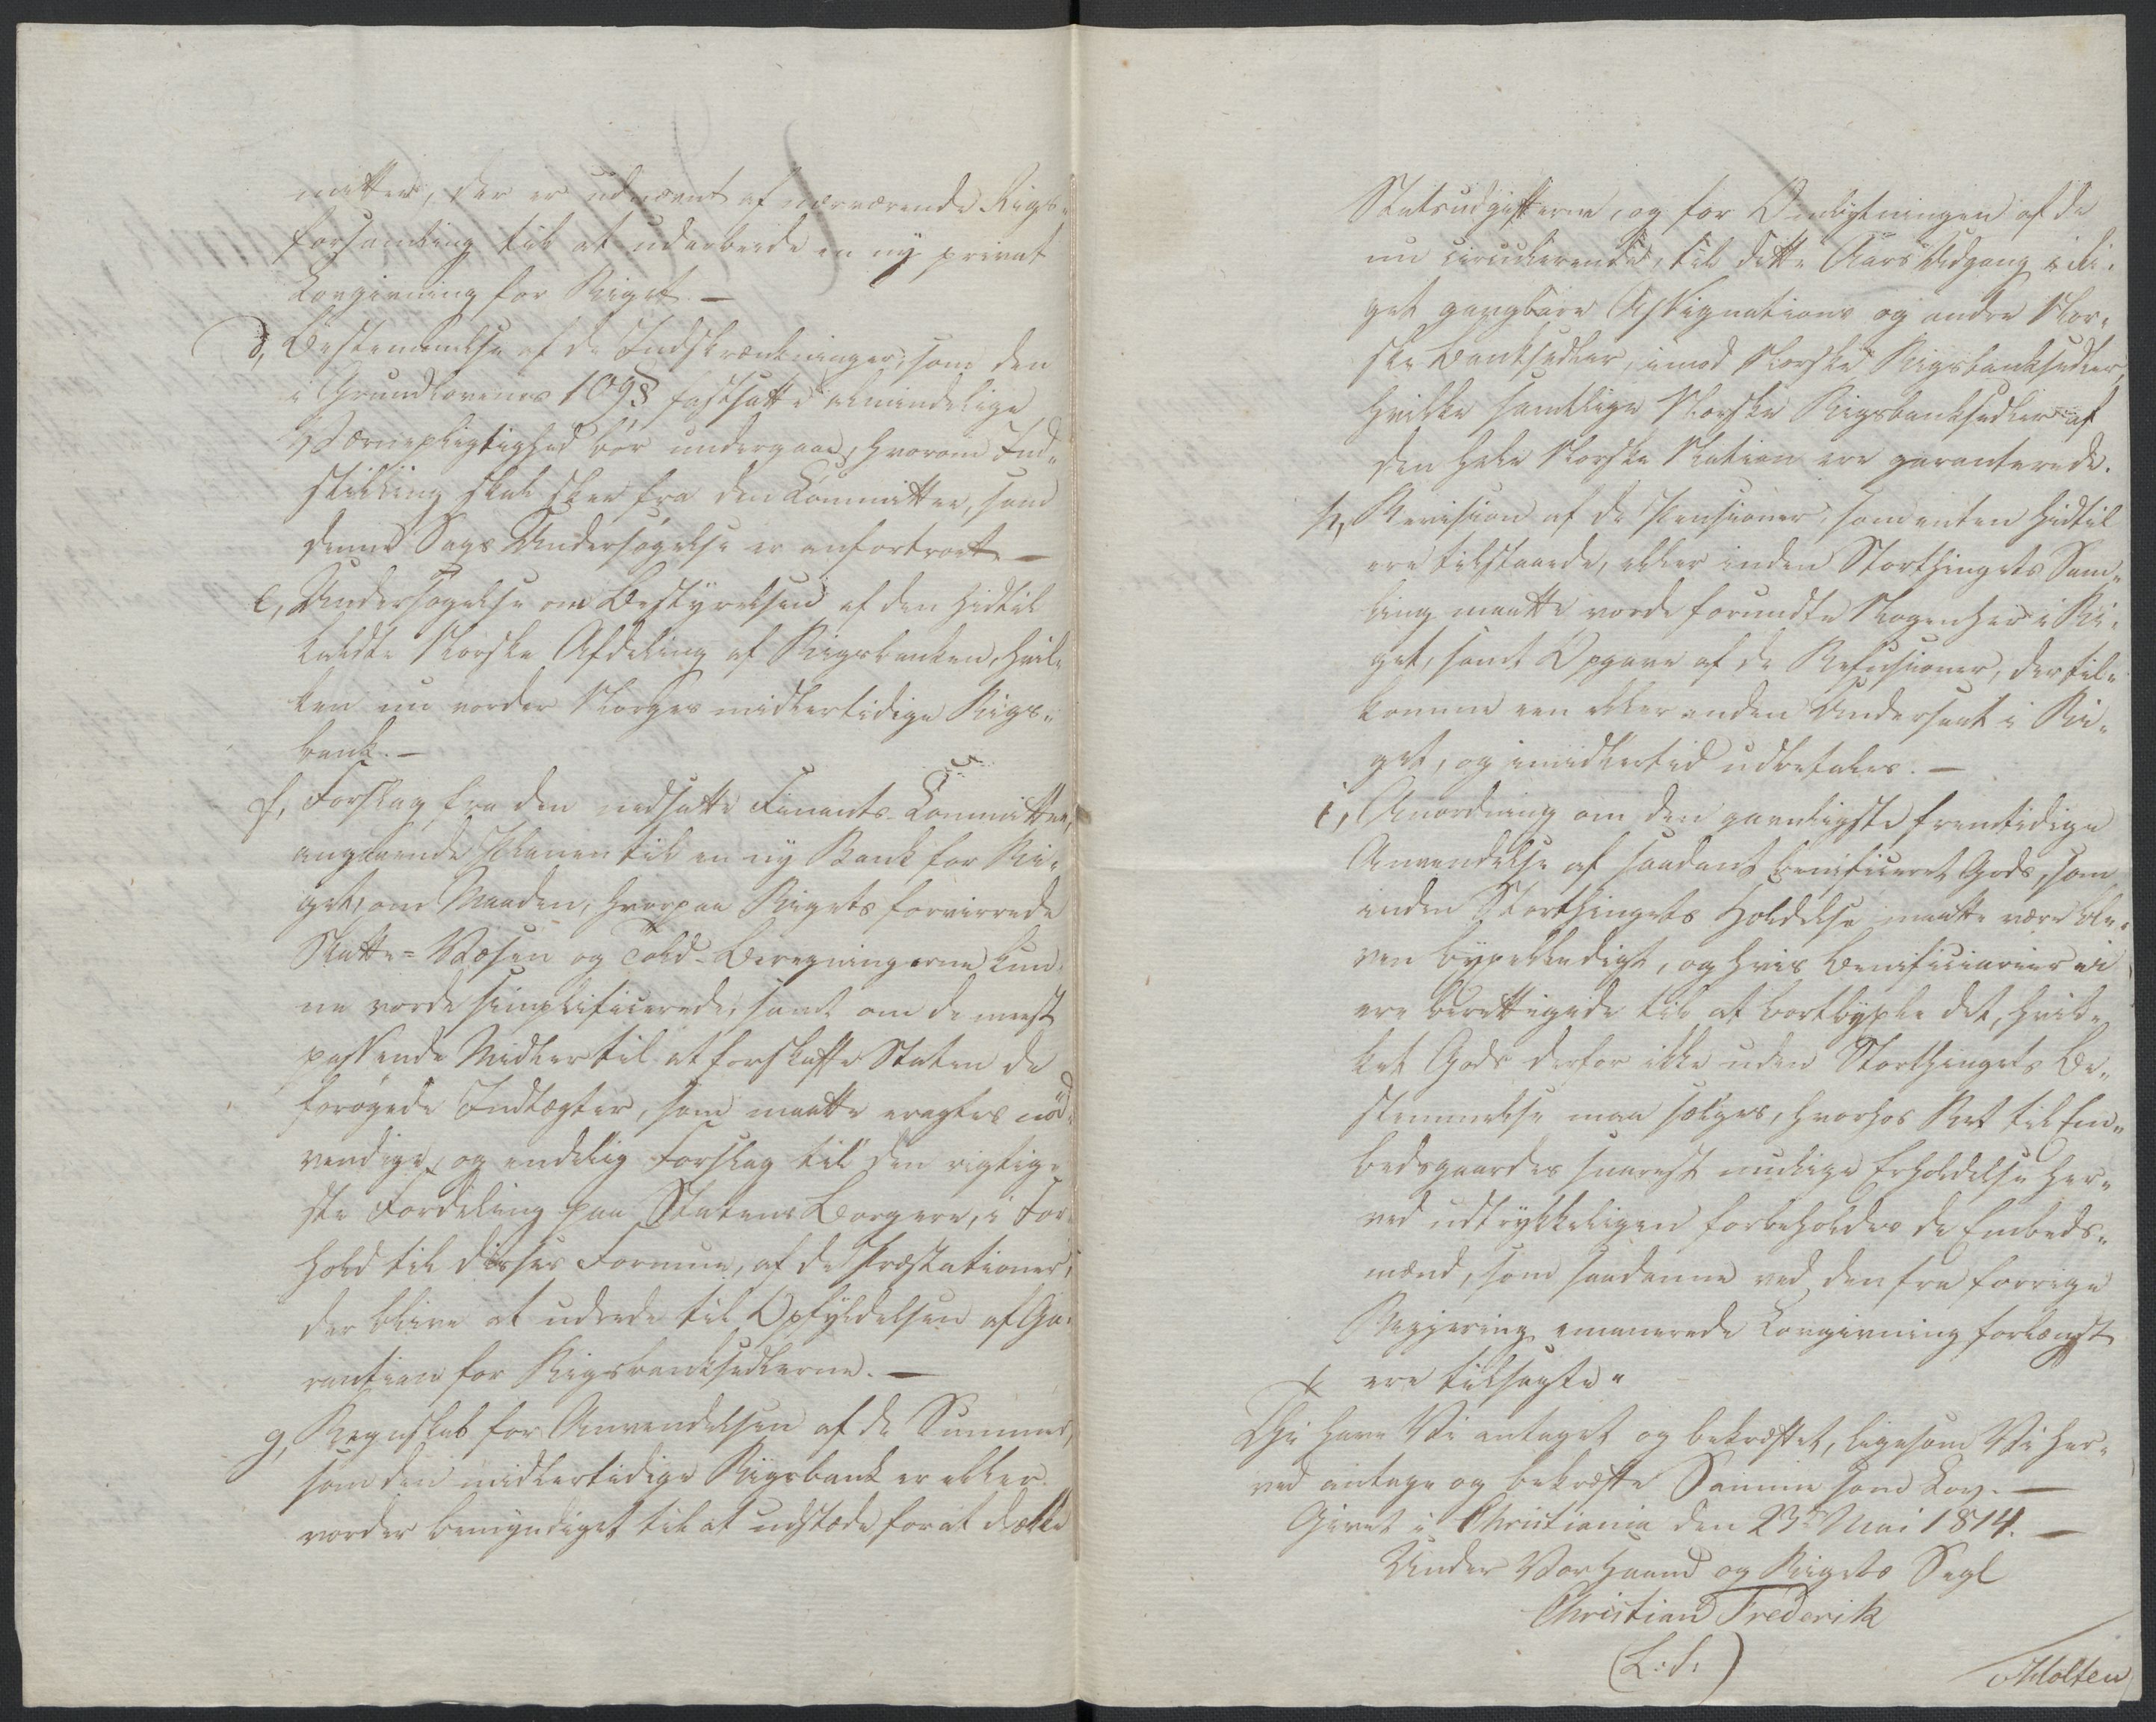 mitteer, der er udnævnt af nærværende Rigs-
forsamling til at udarbeide en ny privat
Lovgivning for Riget. —
d, Bestemmelse af de Indskrænkninger, som den
i Grundlovens 109§ fastsatte almindelige
Værnepligtighed bør undergaae, hvorom Ind-
stilling skal skee fra den Committee, som
denne Sags Undersøgelse er anfortroet. —
e, Undersøgelse om Bestyrelsen af den hidtil
kaldte Norske Afdeling af Rigsbanken, hvil-
ken nu vorder Norges midlertidige Rigs-
bank. —
f, Forslag fra den nedsatte Finants-Committee,
angaaende Planen til en ny Bank for Ri-
get, om Maaden, hvorpaa Rigets forvirrede
Skatte-Væsen og Told-Beregningerne kun-
ne vorde simplificerede, samt om de meest
passende Midler til at forskaffe Staten de
forøgede Indtægter, som maatte eragtes nød-
vendige, og endelig Forslag til den rigtig-
ste Fordeling paa Statens Borgere, i For-
hold til disses Formue, af de Præstationer,
der blive at udrede til Opfyldelsen af Ga-
rantien for Rigsbanksedlerne. —
g, Regnskab for Anvendelsen af de Summer,
som den midlertidige Rigsbank er eller
vorder bemyndiget til at udstæde for at dække
Statsudgifterne, og for Ombytningen af de
nu circulerende, til dette Aars Udgang i Ri-
get gangbare Assignations og andre Nor-
ske Banksedler, imod Norske Rigsbanksedler,
hvilke samtlige Norske Rigsbanksedler af
den hele Norske Nation ere garanterede.
h, Revision af de Pensioner, som enten hidtil
ere tilstaaede, eller inden Storthingets Sam-
ling maatte vorde forundte Nogen her i Ri-
get, samt Opgave af de Refusioner, der til-
komme een eller anden Undersaat i Ri-
get, og imidlertid udbetales. —
i, Anordning om den gavnligste fremtidige
Anvendelse af saadant beneficeret Gods, som
inden Storthingets Holdelse maatte være ble-
ven bygselledigt, og hvis Beneficiarier ei
ere berettigede til at bortbygsle det, hvil-
ket Gods derfor ikke uden Storthingets Be-
stemmelse maa sælges, hvorhos Ret til Em-
bedsgaardes snarest mulige Erholdelse her-
ved udtrykkeligen forbeholdes de Embeds-
mænd, som saadanne ved den fra forrige
Regjering emanerede Lovgivning forlængst
ere tilsagte"
Thi have Vi antaget og bekræftet, ligesom Vi her-
ved antage og bekræfte Samme som Lov. —
Givet i Christiania den 23de Mai 1814. —
Under Vor Haand og Rigets Segl
Christian Frederik
(L: S:)
Holten